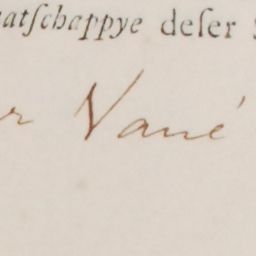 aatſchappye deſer
r Vané